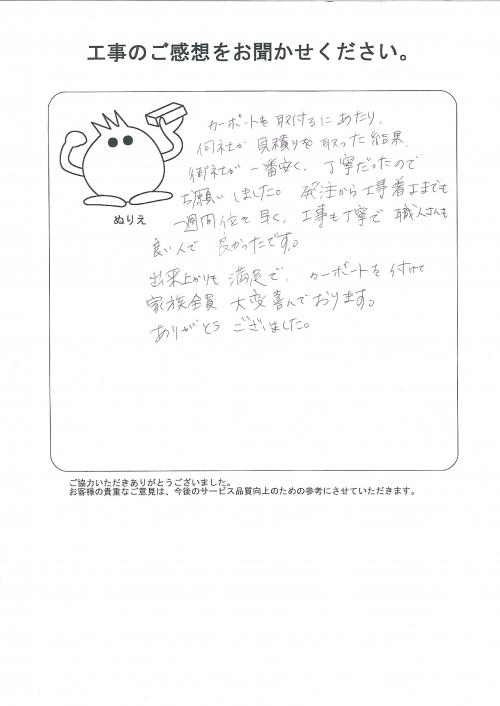 工事のご感想をお聞かせください。
カーポートを取付るにあたり、
何社か見積りを取った結果、
御社が一番安く、丁寧だったので
お願いしました。発注から工事着工までも
一週間位で早く、工事も丁寧で職人さんも
良い人で良かったです。
出来上がりも満足で、カーポートを付けて
家族全員大変喜んでおります。
ありがとうございました。
ぬりえ
ご協力いただきありがとうございました。
お客様の貴重なご意見は、今後のサービス品質向上のための参考にさせていただきます。